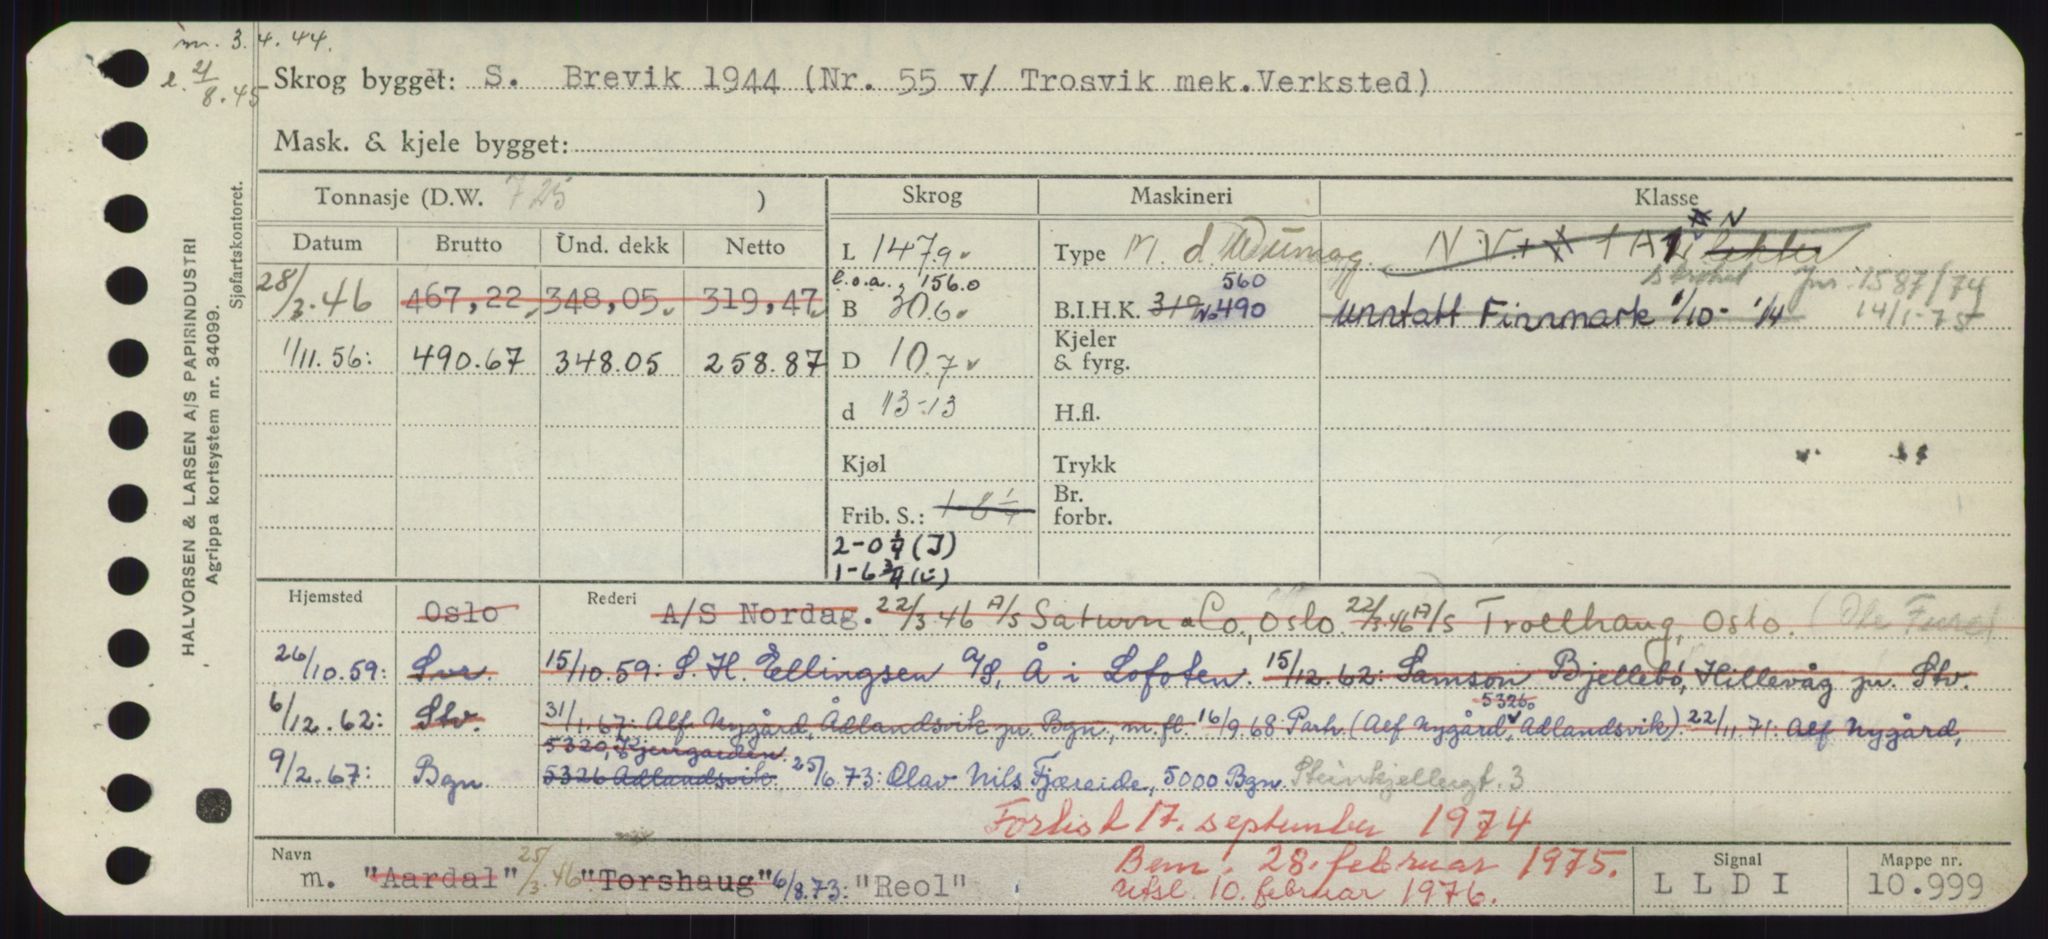 m. 3.4.44.
l. 2/8.45
Skrog bygget: S. Brevik 1944 (Nr. 55 v/ Trosvik mek.Verksted)
Mask. & kjele bygget:
HALVORSEN & LARSEN A/S PAPIRINDUSTRI
Agrippa kortsystem nr. 34099.
Sjøfartskontoret.
Tonnasje (D.W. 725 )
Datum Brutto Und. dekk Netto
28/3.46 467,22 348,05 319,47
1/11.56: 490.67 348.05 258.87
Skrog
L 147.9
l.o.a., 156.0
B 30.6
D 10.7
d 13-13
Kjøl
Frib. S.: 1-8 1/4
2-0 1/4 (J)
1-6 3/4 (i)
Maskineri
Type M. d.
560
B.I.H.K. 319 490
Kjeler
& fyrg.
H.fl.
Trykk
Br.
forbr.
Klasse
N
N.V. + 1 A lekter
slettet Jnr. 1587/74
14/1-75
unntatt Finnmark 1/10- 1/4
Hjemsted Oslo Rederi A/S Nordag. 22/3.46 A/S Saturn & Co., Oslo. 22/3.46 A/S Trollhaug, Oslo.
26/10.59: Svr 15/10.59: S. H. Ellingsen A/S, Å i Lofoten. 15/12.62: Samson Bjellebø, Hillevåg pr. Stv.
6/12.62: Stv. 31/1.67: Alf Nygård, Ådlandsvik pr. Bgn, m.fl. 16/9.68: Parh. (Alf Nygård, 5326 Adlandsvik). 22/11.71: Alf Nygård,
5320,
9/2.67: Bgn 5326 Adlandsvik. 25/6.73: Olav Nils Fjæreide, 5000 Bgn. Steinkjellergt. 3
Forlist 17. september 1974
Navn
m. "Aardal" 25/3.46 "Torshaug" 6/8.73: "Reol"
Bem. 28. februar 1975.
Utsl. 10. februar 1976.
Signal
LLDI
Mappe nr.
10.999